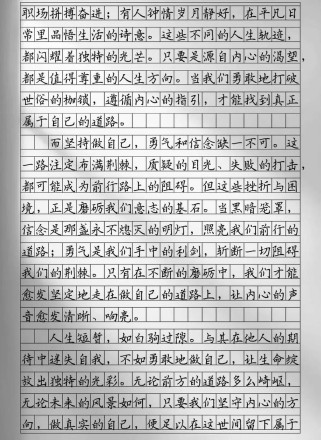 职场拼搏奋进；有人钟情岁月静好，在平凡日
常里品悟生活的诗意。这些不同的人生轨迹，
都闪耀着独特的光芒。只要是源自内心的渴望，
都是值得尊重的人生方向。当我们勇敢地打破
世俗的枷锁，遵循内心的指引，才能找到真正
属于自己的道路。
而坚持做自己，勇气和信念缺一不可。这
一路注定布满荆棘，质疑的目光、失败的打击，
都可能成为前行路上的阻碍。但这些挫折与困
境，正是磨砺我们意志的基石。当黑暗笼罩，
信念是那盏永不熄灭的明灯，照亮我们前行的
道路；勇气是我们手中的利剑，斩断一切阻碍
我们的荆棘。只有在不断的磨砺中，我们才能
愈发坚定地走在做自己的道路上，让内心的声
音愈发清晰、响亮。
人生短暂，如白驹过隙。与其在他人的期
待中迷失自我，不如勇敢地做自己，让生命绽
放出独特的光彩。无论前方的道路多么崎岖，
无论未来的风景如何，只要我们坚守内心的方
向，做真实的自己，便足以在这世间留下属于